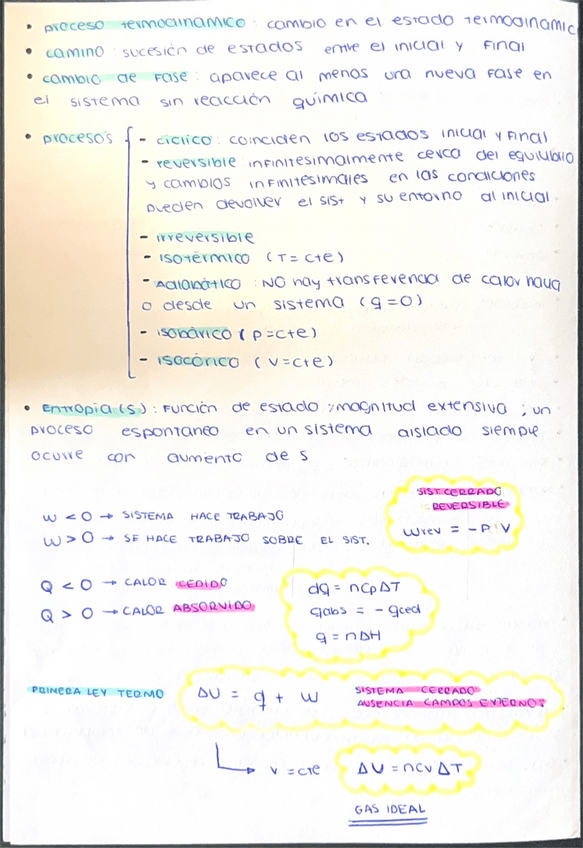 • proceso termodinamico : cambio en el estado termodinamic
• camino : sucesión de estados entre el inicial y final
• cambio de fase : aparece al menos una nueva fase en
el sistema sin reacción química
• procesos - cíclico : coinciden los estados inicial y final
- reversible infinitesimalmente cerca del equilibrio
y cambios infinitesimales en las condiciones
pueden devolver el sist y su entorno al inicial.
- irreversible
- isotérmico (T = cte)
- Adiabático : NO hay transferencia de calor haua
o desde un sistema (q = 0)
- isobárico (p = cte)
- isocórico (V = cte)
• Entropia (S) : Función de estado ; magnitud extensiva ; un
proceso espontaneo en un sistema aislado siempre
ocurre con aumento de S
SIST. CERRADO
REVERSIBLE
W < 0 → SISTEMA HACE TRABAJO
W > 0 → SE HACE TRABAJO SOBRE EL SIST.
Wrev = - P V
Q < 0 → CALOR CEDIDO
Q > 0 → CALOR ABSORVIDO
dq = nCp ΔT
qabs = - qced
q = nΔH
PRIMERA LEY TERMO
ΔU = q + w
SISTEMA CERRADO
AUSENCIA CAMPOS EXTERNOS
V = cte
ΔU = ncv ΔT
GAS IDEAL